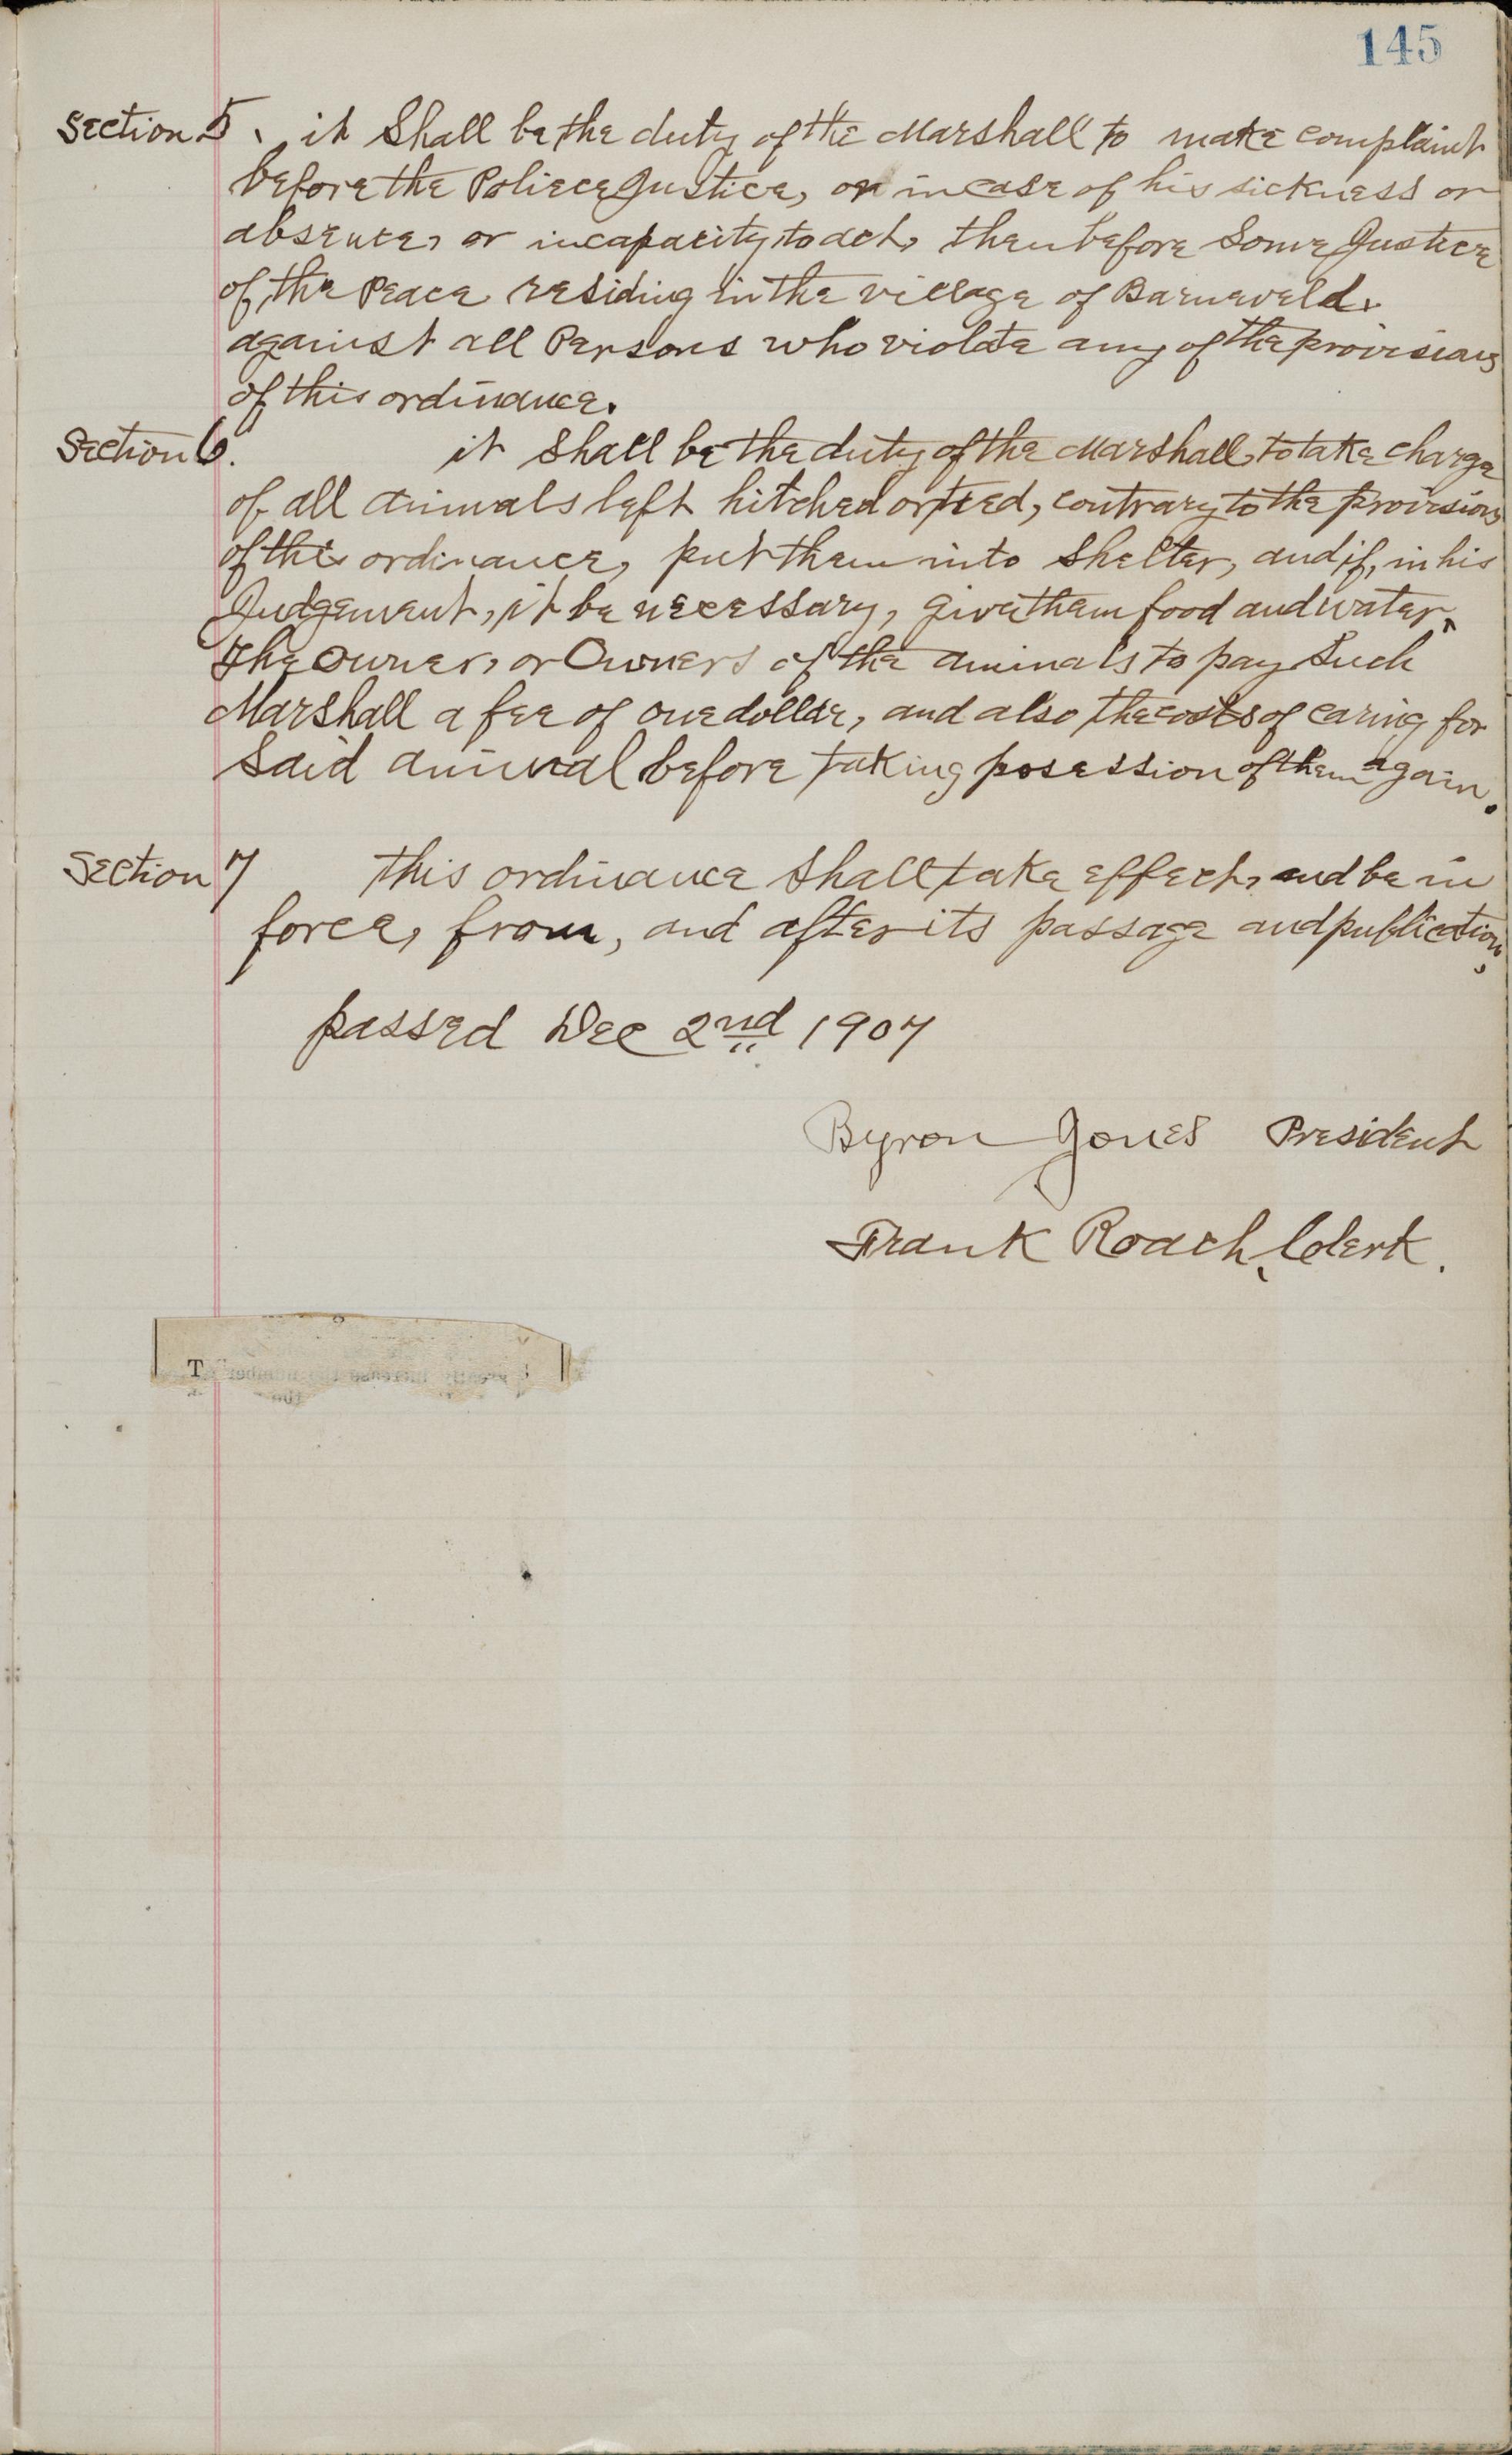 145
Section 5. it Shall be the duty of the Marshall to make complaint
before the Poliece Justice, or in case of his sickness or
absence, or incapacity to act, then before Some Justice
of the Peace residing in the village of Barneveld.
against all Persons who violate any of the provisions
of this ordinance.
Section 6. it Shall be the duty of the Marshall, to take charge
of all animals left hitched or tied, contrary to the provisions
of this ordinance, put them into Shelter, and if, in his
Judgement, it be necessary, give them food and water.
The owner, or Owners of the animals to pay Such
Marshall a fee of one dollar, and also the costs of caring for
Said animal before taking posession of them again.
Section 7 this ordinance Shall take effect, and be in
force, from, and after its passage and publication.
passed Dec 2nd 1907
Byron Jones President
Frank Roach, Clerk.
T